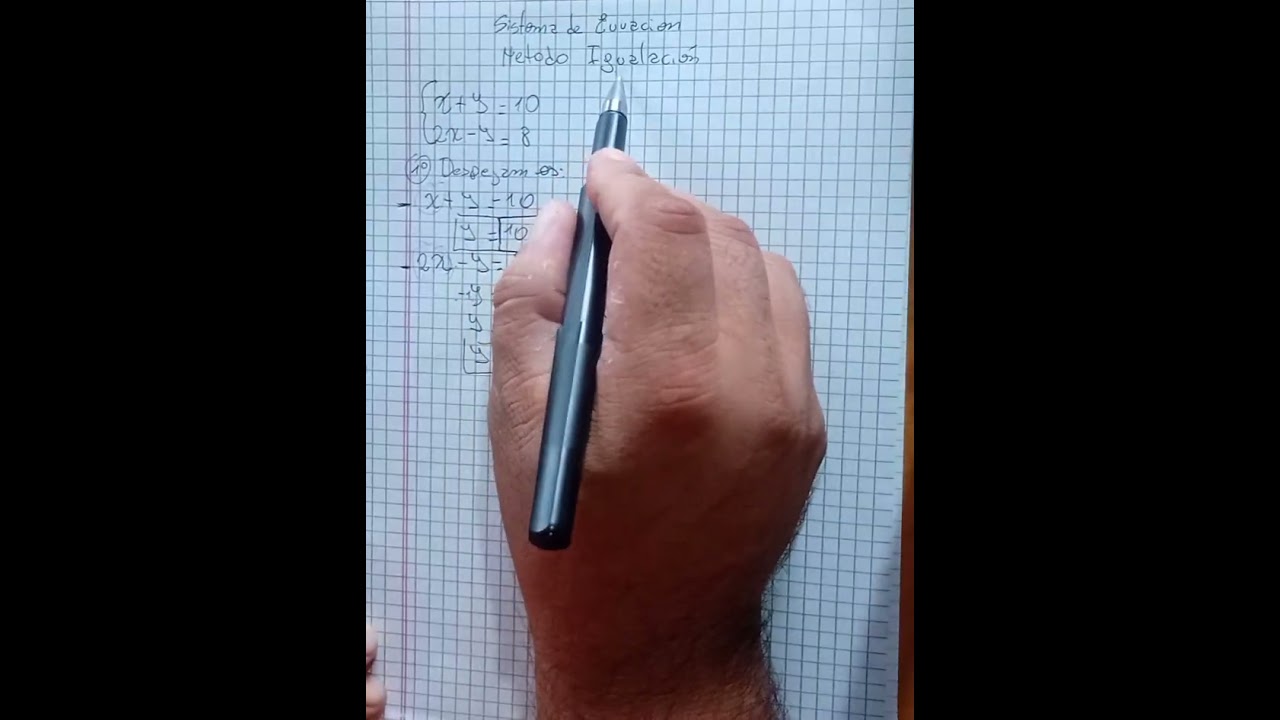 Sistema de Ecuacion
Metodo Igualación
x+y=10
2x-y=8
1º Despejamos:
- x+y=10
y=10
- 2x-y=
-1y
y
y